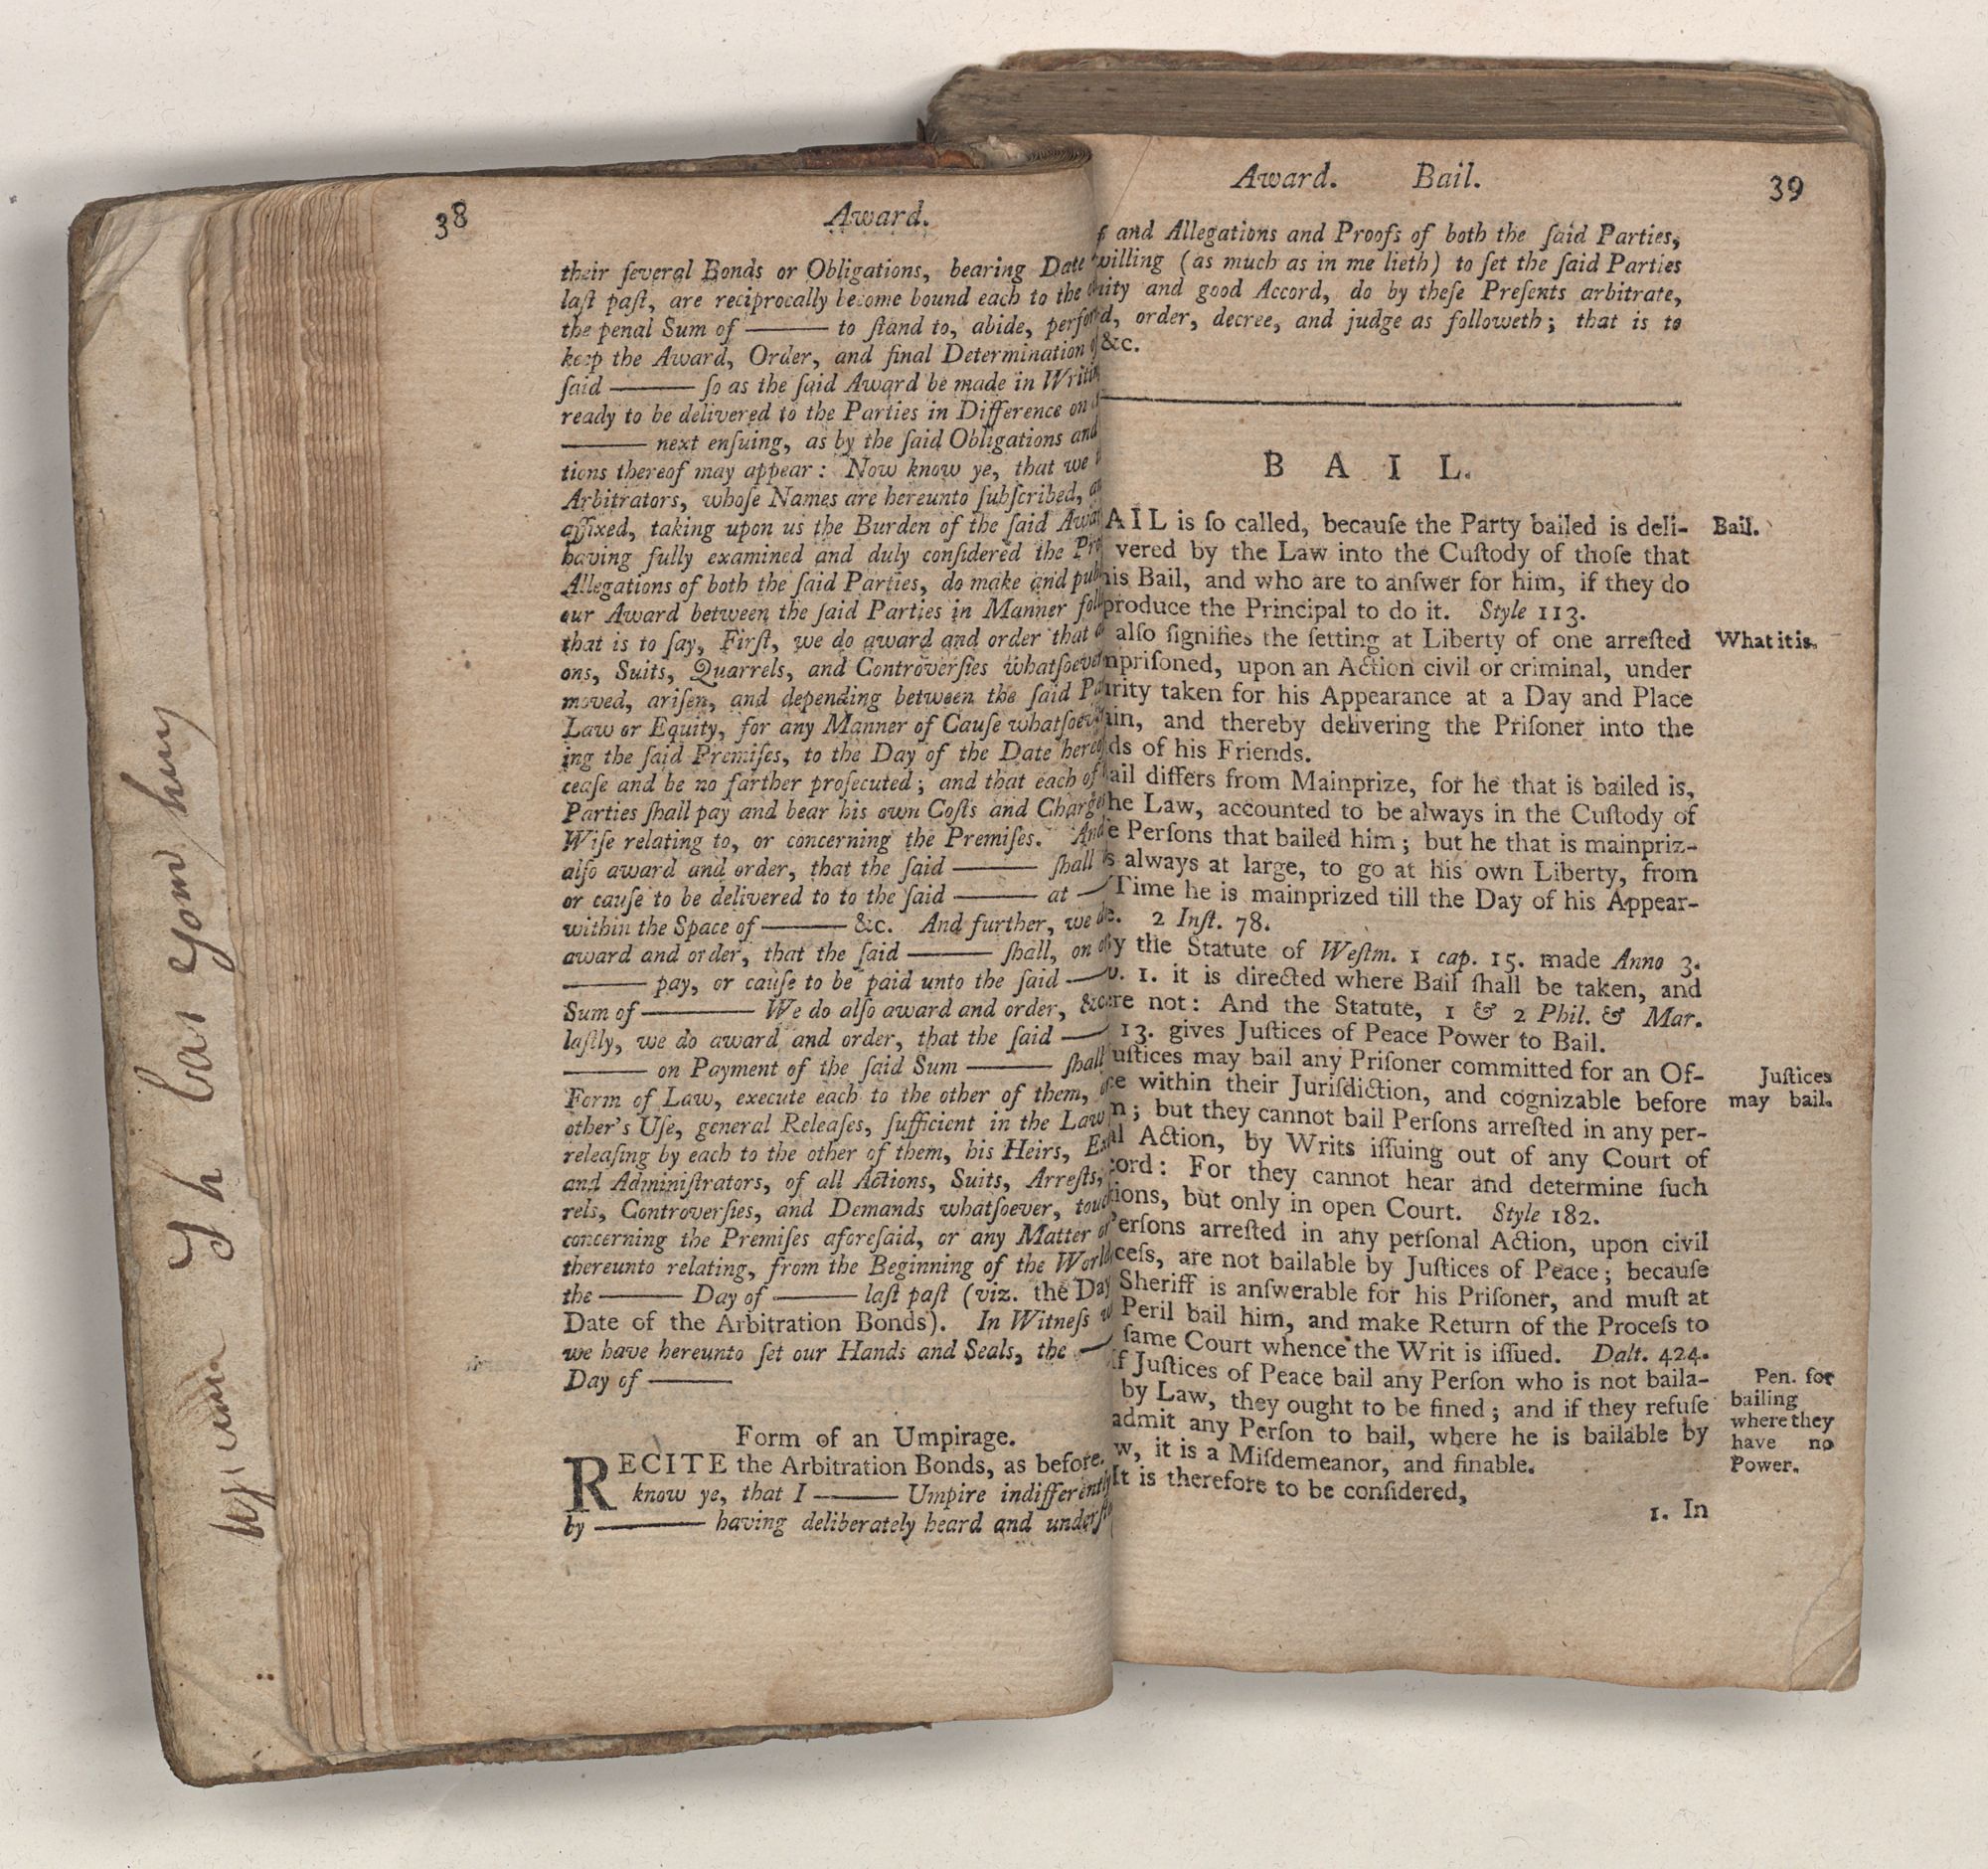 38
Award.
their ſeveral Bonds or Obligations, bearing Date
laſt paſt, are reciprocally become bound each to the
the penal Sum of ——— to ſtand to, abide,
keep the Award, Order, and final Determination
ſaid ——— ſo as the ſaid Award be made in
ready to be delivered to the Parties in Difference on
——— next enſuing, as by the ſaid Obligations and
tions thereof may appear: Now know ye, that we
Arbitrators, whoſe Names are hereunto ſubſcribed,
affixed, taking upon us the Burden of the ſaid
having fully examined and duly conſidered the
Allegations of both the ſaid Parties, do make and
our Award between the ſaid Parties in Manner
that is to ſay, Firſt, we do award and order that
ons, Suits, Quarrels, and Controverſies
moved, ariſen, and depending between the ſaid
Law or Equity, for any Manner of Cauſe
ing the ſaid Premiſes, to the Day of the Date
ceaſe and be no farther proſecuted; and that each of
Parties ſhall pay and bear his own Coſts and
Wiſe relating to, or concerning the Premiſes. And
alſo award and order, that the ſaid ——— ſhall
or cauſe to be delivered to to the ſaid ——— at ——
within the Space of ——— &c. And further, we
award and order, that the ſaid ——— ſhall, on
——— pay, or cauſe to be paid unto the ſaid ——
Sum of ——— We do alſo award and order, &c.
laſtly, we do award and order, that the ſaid ——
——— on Payment of the ſaid Sum ——— ſhall
Form of Law, execute each to the other of them,
other's Uſe, general Releaſes, ſufficient in the Law
releaſing by each to the other of them, his Heirs,
and Adminiſtrators, of all Actions, Suits, Arreſts,
rels, Controverſies, and Demands whatſoever,
concerning the Premiſes aforeſaid, or any Matter
thereunto relating, from the Beginning of the World
the ——— Day of ——— laſt paſt (viz. the Day
Date of the Arbitration Bonds). In Witneſs
we have hereunto ſet our Hands and Seals, the ——
Day of ———
Form of an Umpirage.
RECITE the Arbitration Bonds, as before.
know ye, that I ——— Umpire
by ——— having deliberately heard and
Award. Bail. 39
and Allegations and Proofs of both the ſaid Parties,
willing (as much as in me lieth) to ſet the ſaid Parties
nity and good Accord, do by theſe Preſents arbitrate,
d, order, decree, and judge as followeth; that is to
&c.
BAIL.
AIL is ſo called, becauſe the Party bailed is deli-
vered by the Law into the Cuſtody of thoſe that
his Bail, and who are to anſwer for him, if they do
produce the Principal to do it. Style 113.
alſo ſignifies the ſetting at Liberty of one arreſted
mpriſoned, upon an Action civil or criminal, under
urity taken for his Appearance at a Day and Place
ain, and thereby delivering the Priſoner into the
ds of his Friends.
ail differs from Mainprize, for he that is bailed is,
he Law, accounted to be always in the Cuſtody of
e Perſons that bailed him; but he that is mainpriz-
s always at large, to go at his own Liberty, from
Time he is mainprized till the Day of his Appear-
2 Inſt. 78.
y the Statute of Weſtm. 1 cap. 15. made Anno 3.
1. it is directed where Bail ſhall be taken, and
re not: And the Statute, 1 & 2 Phil. & Mar.
13. gives Juſtices of Peace Power to Bail.
uſtices may bail any Priſoner committed for an Of-
ce within their Jurisdiction, and cognizable before
m; but they cannot bail Perſons arreſted in any per-
al Action, by Writs iſſuing out of any Court of
cord: For they cannot hear and determine ſuch
tions, but only in open Court. Style 182.
Perſons arreſted in any perſonal Action, upon civil
ceſs, are not bailable by Juſtices of Peace; becauſe
Sheriff is anſwerable for his Priſoner, and muſt at
Peril bail him, and make Return of the Proceſs to
ſame Court whence the Writ is iſſued. Dalt. 424.
If Juſtices of Peace bail any Perſon who is not baila-
by Law, they ought to be fined; and if they refuſe
admit any Perſon to bail, where he is bailable by
w, it is a Miſdemeanor, and finable.
It is therefore to be conſidered,
1. In
Bail.
What it is.
Juſtices
may bail.
Pen. for
bailing
where they
have no
Power.